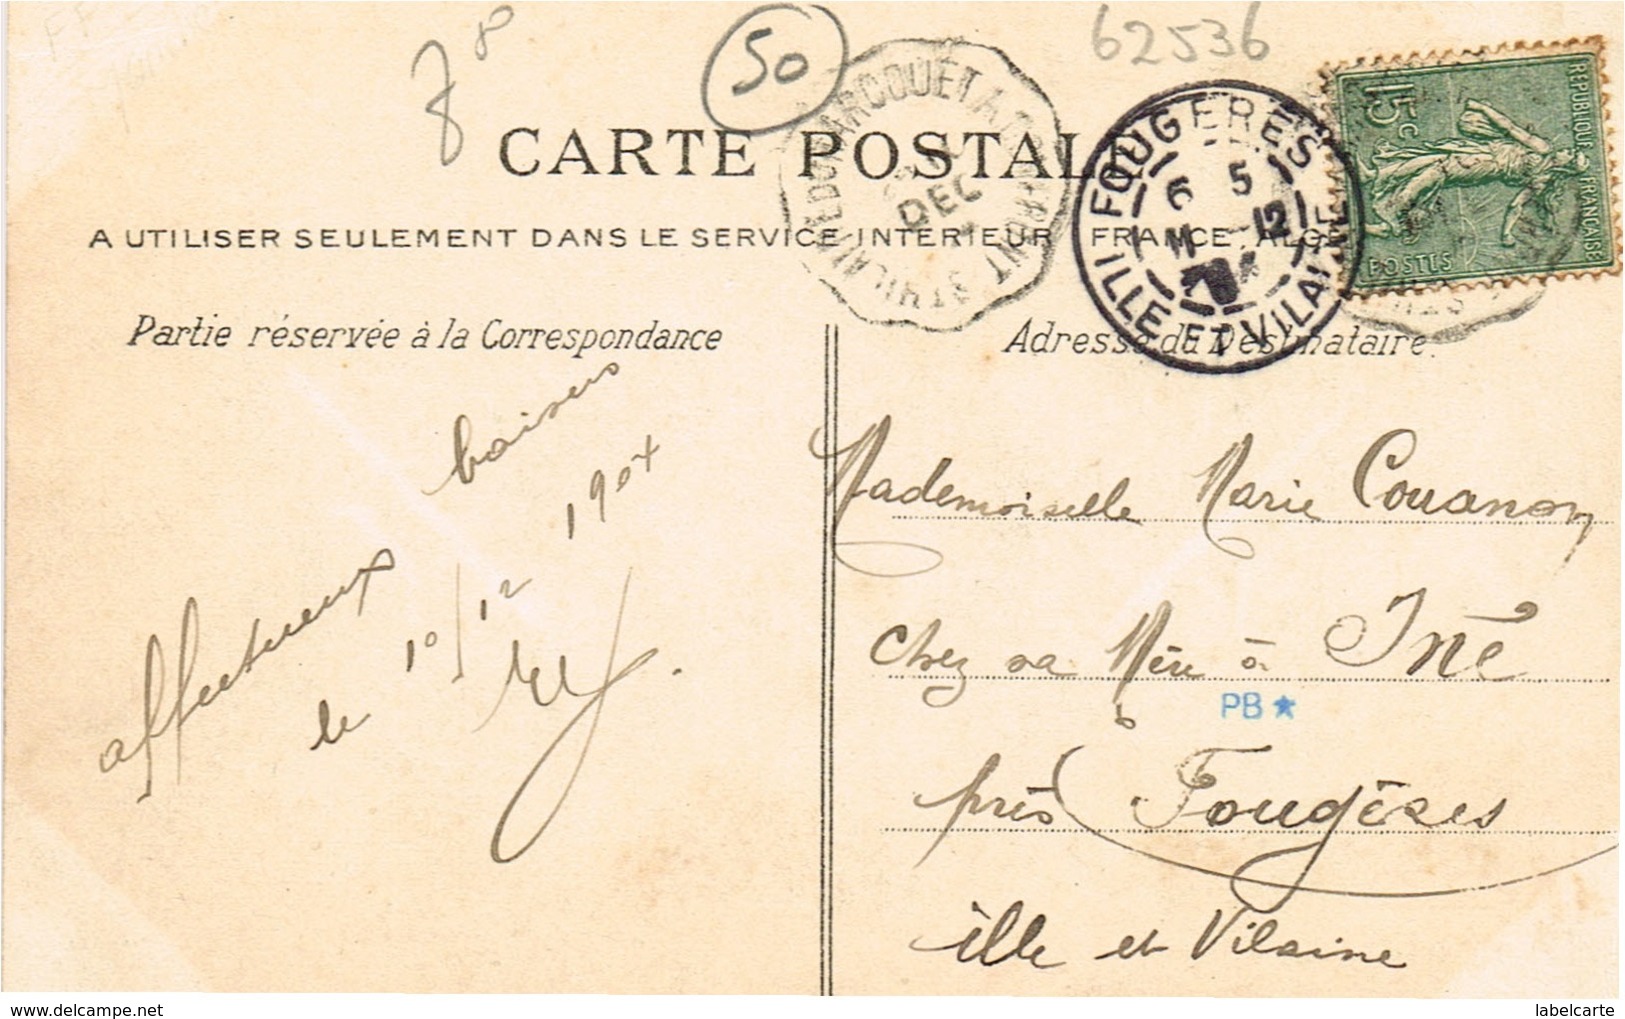 78
50
62536
CARTE POSTALE
DEC
FOUGERES
6 5
11 -12
04
ILLE ET VILAINE
15c
REPUBLIQUE FRANCAISE
POSTES
A UTILISER SEULEMENT DANS LE SERVICE INTERIEUR FRANCE, ALG
Partie réservée à la Correspondance
Adresse du Destinataire.
affectueux baisers
le 10/12 1904
Mademoiselle Marie Couanon
chez sa Mère à Iné
PB ★
près Fougères
ille et Vilaine
delcampe.net
labelcarte